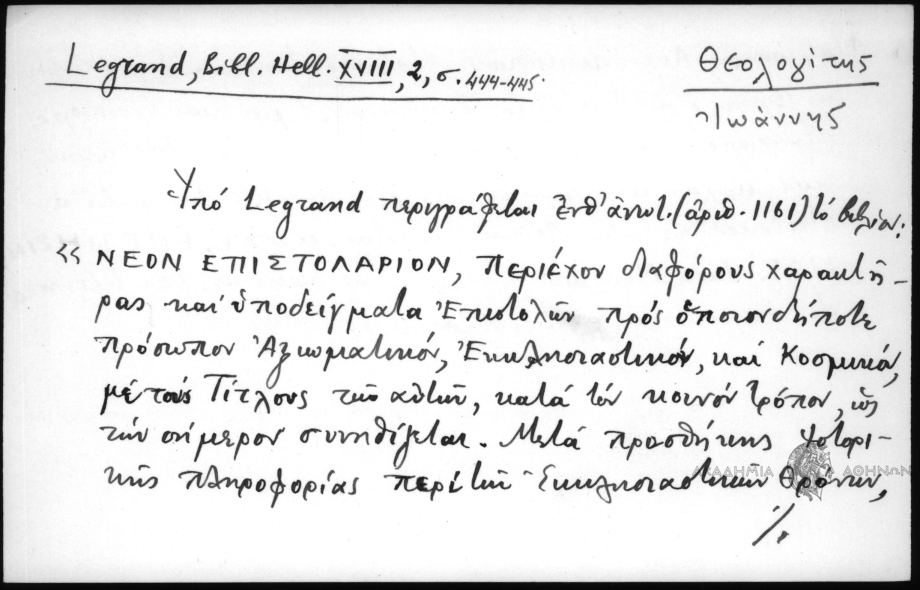 Legrand, Bibl. Hell. XVIII, 2, σ. 444-445.
Θεολογίτης
Ἰωάννης
Ὑπό Legrand περιγράφεται ἐνθ' ἀνωτ. (ἀριθ. 1161) τό βιβλίον:
«ΝΕΟΝ ΕΠΙΣΤΟΛΑΡΙΟΝ, περιέχον διαφόρους χαρακτῆ-
ρας καί ὑποδείγματα Ἐπιστολῶν πρός ὁποιονδήποτε
πρόσωπον Ἀξιωματικόν, Ἐκκλησιαστικόν, καί Κοσμικόν,
μέ τούς Τίτλους τῶν αὐτῶν, κατά τόν κοινόν τρόπον, ὡς
τήν σήμερον συνηθίζεται. Μετά προσθήκης Ἱστορι-
κῆς πληροφορίας περί τῶν Ἐκκλησιαστικῶν Θρόνων,
ΑΚΑΔΗΜΙΑ ΑΘΗΝΩΝ
./.